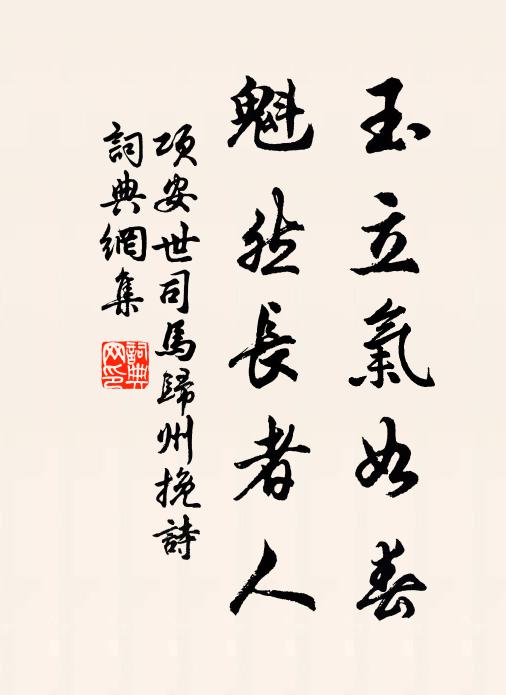 玉立氣如春
魁然長者人
項安世司馬歸州挽詩
詞典網集
詞典網印